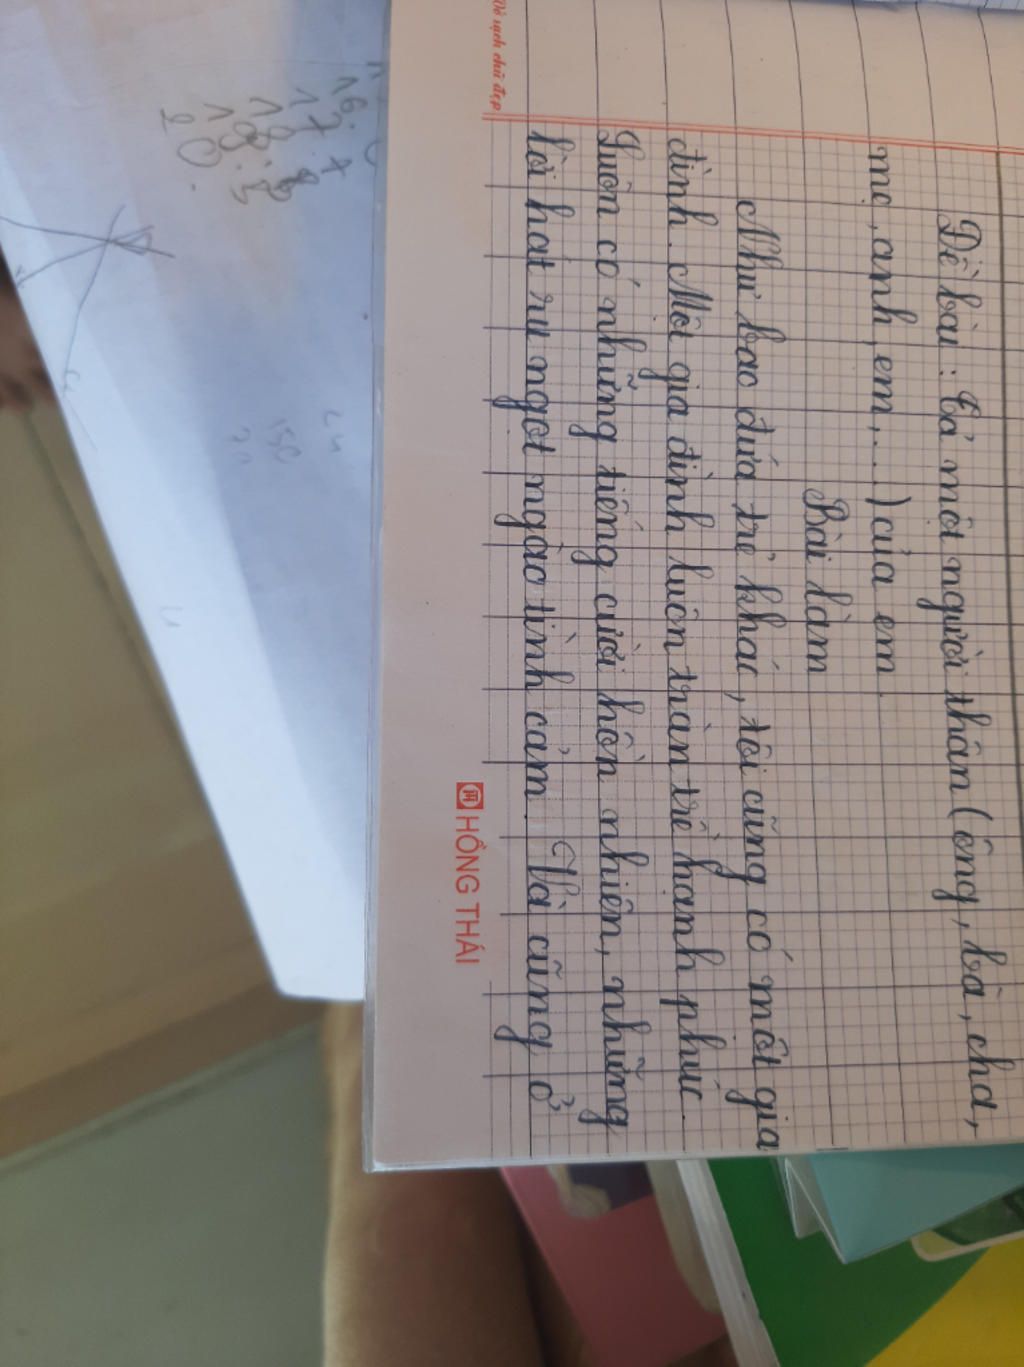 Đề bài: Tả một người thân (ông, bà, cha,
mẹ, anh, em,...) của em.
Bài làm
Như bao đứa trẻ khác, tôi cũng có một gia
đình. Một gia đình luôn tràn trề hạnh phúc.
Luôn có những tiếng cười hồn nhiên, những
lời hát ru ngọt ngào tình cảm. Và cũng ở
Vở sạch chữ đẹp
HỒNG THÁI
16.
17. +
18. B
19. B
20.
150